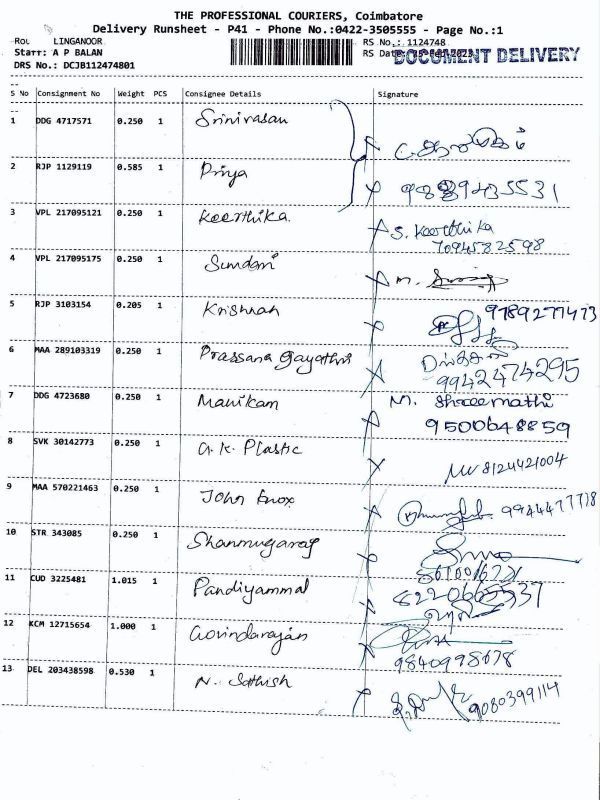 THE PROFESSIONAL COURIERS, Coimbatore
Delivery Runsheet - P41 - Phone No.:0422-3505555 - Page No.:1
LINGANOOR RS No.: 1124748
Staff: A P BALAN RS Date: DOCUMENT DELIVERY
DRS No.: DCJB112474801
S No Consignment No Weight PCS Consignee Details Signature
1 DDG 4717571 0.250 1 Srinivasan
2 RJP 1129119 0.585 1 Priya
3 VPL 217095121 0.250 1 Keerthika S. Keerthika
7094582598
4 VPL 217095175 0.250 1 Sundari M.
5 RJP 3103154 0.205 1 Krishnan 9789277473
6 MAA 289103319 0.250 1 Prassana Gayathri
9942474295
7 DDG 4723680 0.250 1 Manikam M. Shreemathi
9500648859
8 SVK 30142773 0.250 1 G.K. Plastic 8124421004
9 MAA 570221463 0.250 1 John Enox 9944477718
10 STR 343085 0.250 1 Shanmugaraj
11 CUD 3225481 1.015 1 Pandiyammal
12 KCM 12715654 1.000 1 Govindarajan
9840998678
13 DEL 203438598 0.530 1 N. Sathish 9080399114